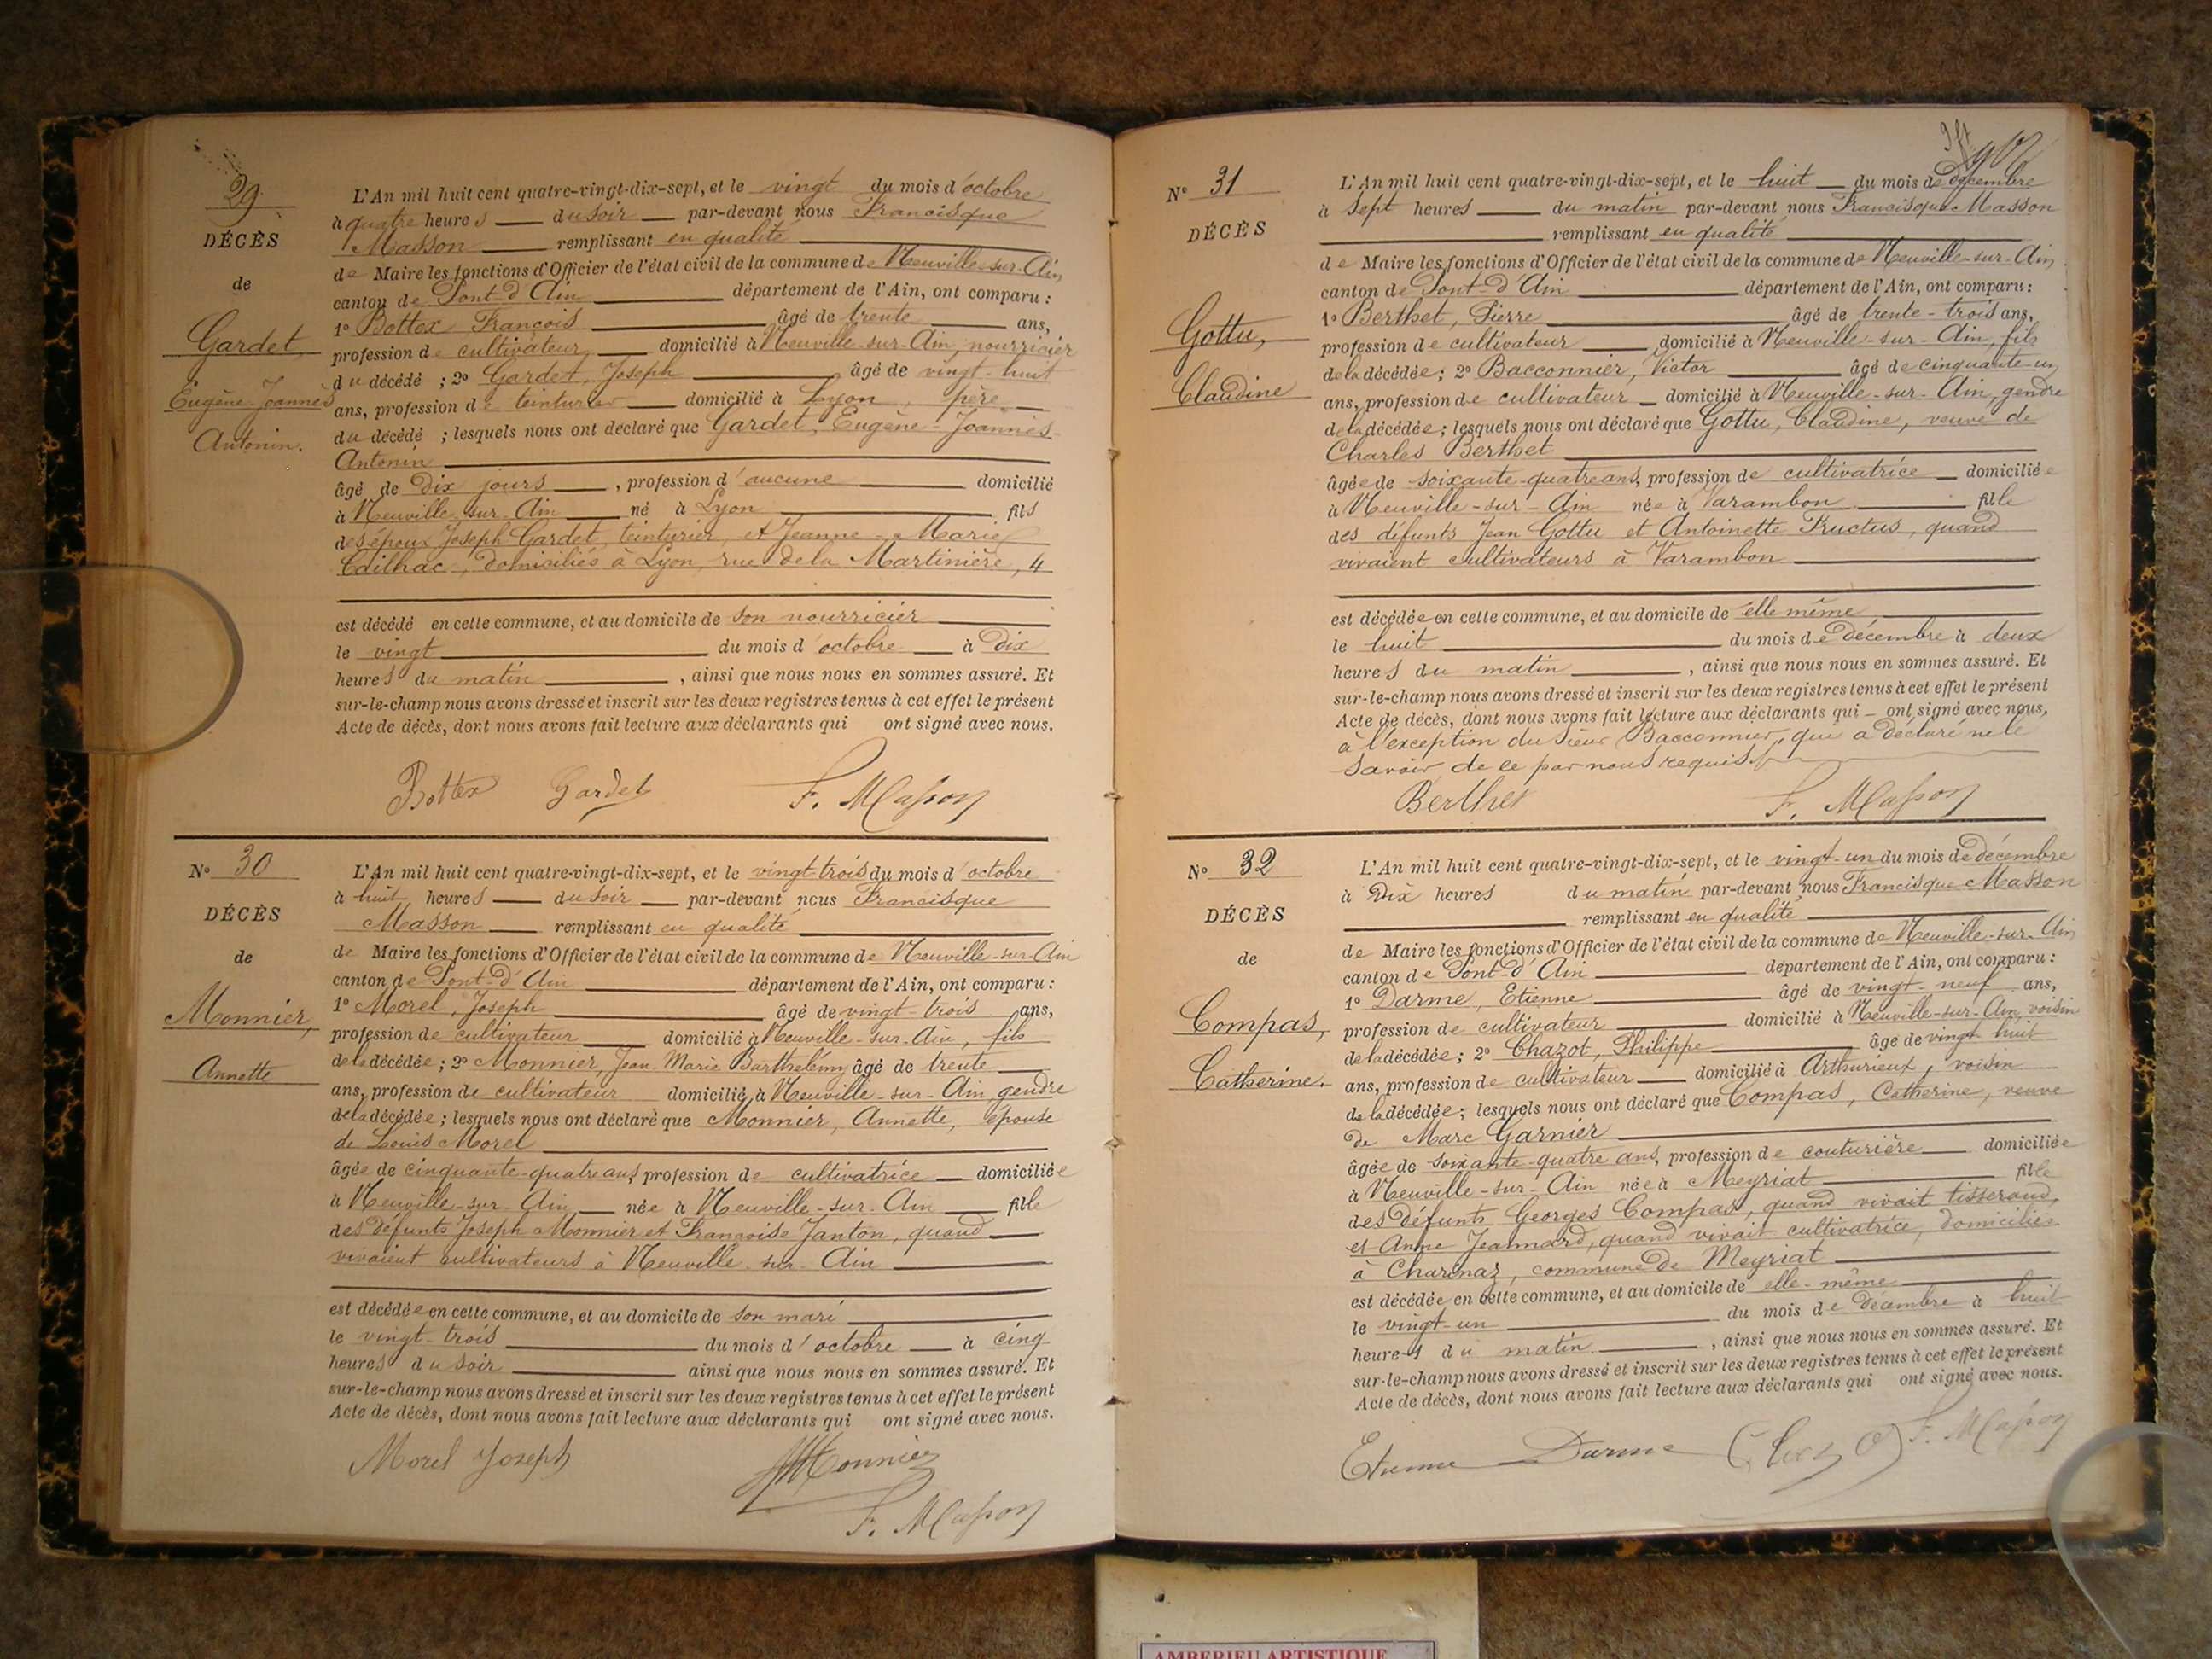 29
DÉCÈS
de
Gardet,
Eugène-Joannès
Antonin.
L'An mil huit cent quatre-vingt-dix-sept, et le vingt du mois d'octobre
à quatre heures du soir par-devant nous Francisque
Masson remplissant en qualité
de Maire les fonctions d'Officier de l'état civil de la commune de Neuville-sur-Ain
canton de Pont-d'Ain département de l'Ain, ont comparu :
1º Bottex François âgé de trente ans,
profession de cultivateur domicilié à Neuville-sur-Ain, nourricier
du décédé ; 2º Gardet, Joseph âgé de vingt-huit
ans, profession de teinturier domicilié à Lyon, père
du décédé ; lesquels nous ont déclaré que Gardet, Eugène-Joannès-
Antonin
âgé de dix jours, profession d'aucune domicilié
à Neuville-sur-Ain né à Lyon fils
des époux Joseph Gardet, teinturier, et Jeanne-Marie
Cailhac, domiciliés à Lyon, rue de la Martinière, 4
est décédé en cette commune, et au domicile de son nourricier
le vingt du mois d'octobre à dix
heures du matin, ainsi que nous nous en sommes assuré. Et
sur-le-champ nous avons dressé et inscrit sur les deux registres tenus à cet effet le présent
Acte de décès, dont nous avons fait lecture aux déclarants qui ont signé avec nous.
Bottex Gardet F. Masson
Nº 30
DÉCÈS
de
Monnier,
Annette
L'An mil huit cent quatre-vingt-dix-sept, et le vingt-trois du mois d'octobre
à huit heures du soir par-devant nous Francisque
Masson remplissant en qualité
de Maire les fonctions d'Officier de l'état civil de la commune de Neuville-sur-Ain
canton de Pont-d'Ain département de l'Ain, ont comparu :
1º Morel, Joseph âgé de vingt-trois ans,
profession de cultivateur domicilié à Neuville-sur-Ain, fils
de la décédée ; 2º Monnier, Jean Marie Barthelémy âgé de trente
ans, profession de cultivateur domicilié à Neuville-sur-Ain gendre
de la décédée ; lesquels nous ont déclaré que Monnier, Annette, épouse
de Louis Morel
âgée de cinquante-quatre ans, profession de cultivatrice domiciliée
à Neuville-sur-Ain née à Neuville-sur-Ain fille
des défunts Joseph Monnier et Françoise Janton, quand
vivaient cultivateurs à Neuville-sur-Ain
est décédée en cette commune, et au domicile de son mari
le vingt-trois du mois d'octobre à cinq
heures du soir ainsi que nous nous en sommes assuré. Et
sur-le-champ nous avons dressé et inscrit sur les deux registres tenus à cet effet le présent
Acte de décès, dont nous avons fait lecture aux déclarants qui ont signé avec nous.
Morel Joseph Monnier
F. Masson
Nº 31
DÉCÈS
Gottu,
Claudine
L'An mil huit cent quatre-vingt-dix-sept, et le huit du mois de décembre
à sept heures du matin par-devant nous Francisque Masson
remplissant en qualité
de Maire les fonctions d'Officier de l'état civil de la commune de Neuville-sur-Ain
canton de Pont-d'Ain département de l'Ain, ont comparu :
1º Berthet, Pierre âgé de trente-trois ans,
profession de cultivateur domicilié à Neuville-sur-Ain, fils
de la décédée ; 2º Bacconnier, Victor âgé de cinquante-un
ans, profession de cultivateur domicilié à Neuville-sur-Ain, gendre
de la décédée ; lesquels nous ont déclaré que Gottu, Claudine, veuve de
Charles Berthet
âgée de soixante-quatre ans, profession de cultivatrice domiciliée
à Neuville-sur-Ain née à Varambon fille
des défunts Jean Gottu et Antoinette Fructus, quand
vivaient cultivateurs à Varambon
est décédée en cette commune, et au domicile de elle même
le huit du mois de décembre à deux
heures du matin, ainsi que nous nous en sommes assuré. Et
sur-le-champ nous avons dressé et inscrit sur les deux registres tenus à cet effet le présent
Acte de décès, dont nous avons fait lecture aux déclarants qui ont signé avec nous,
à l'exception du sieur Bacconnier, qui a déclaré ne le
savoir, de ce par nous requis.
Berthet F. Masson
Nº 32
DÉCÈS
de
Compas,
Catherine.
L'An mil huit cent quatre-vingt-dix-sept, et le vingt-un du mois de décembre
à dix heures du matin par-devant nous Francisque Masson
remplissant en qualité
de Maire les fonctions d'Officier de l'état civil de la commune de Neuville-sur-Ain
canton de Pont-d'Ain département de l'Ain, ont comparu :
1º Darme, Etienne âgé de vingt-neuf ans,
profession de cultivateur domicilié à Neuville-sur-Ain, voisin
de la décédée ; 2º Chazot, Philippe âgé de vingt huit
ans, profession de cultivateur domicilié à Arthurieux, voisin
de la décédée ; lesquels nous ont déclaré que Compas, Catherine, veuve
de Marc Garnier
âgée de soixante-quatre ans, profession de couturière domiciliée
à Neuville-sur-Ain née à Meyriat fille
des défunts Georges Compas, quand vivait tisserand,
et Anne Jeannard, quand vivait cultivatrice, domiciliés
à Charinaz, commune de Meyriat
est décédée en cette commune, et au domicile de elle-même
le vingt-un du mois de décembre à huit
heures du matin, ainsi que nous nous en sommes assuré. Et
sur-le-champ nous avons dressé et inscrit sur les deux registres tenus à cet effet le présent
Acte de décès, dont nous avons fait lecture aux déclarants qui ont signé avec nous.
Etienne Darme F. Masson
AMBERIEU ARTISTIQUE